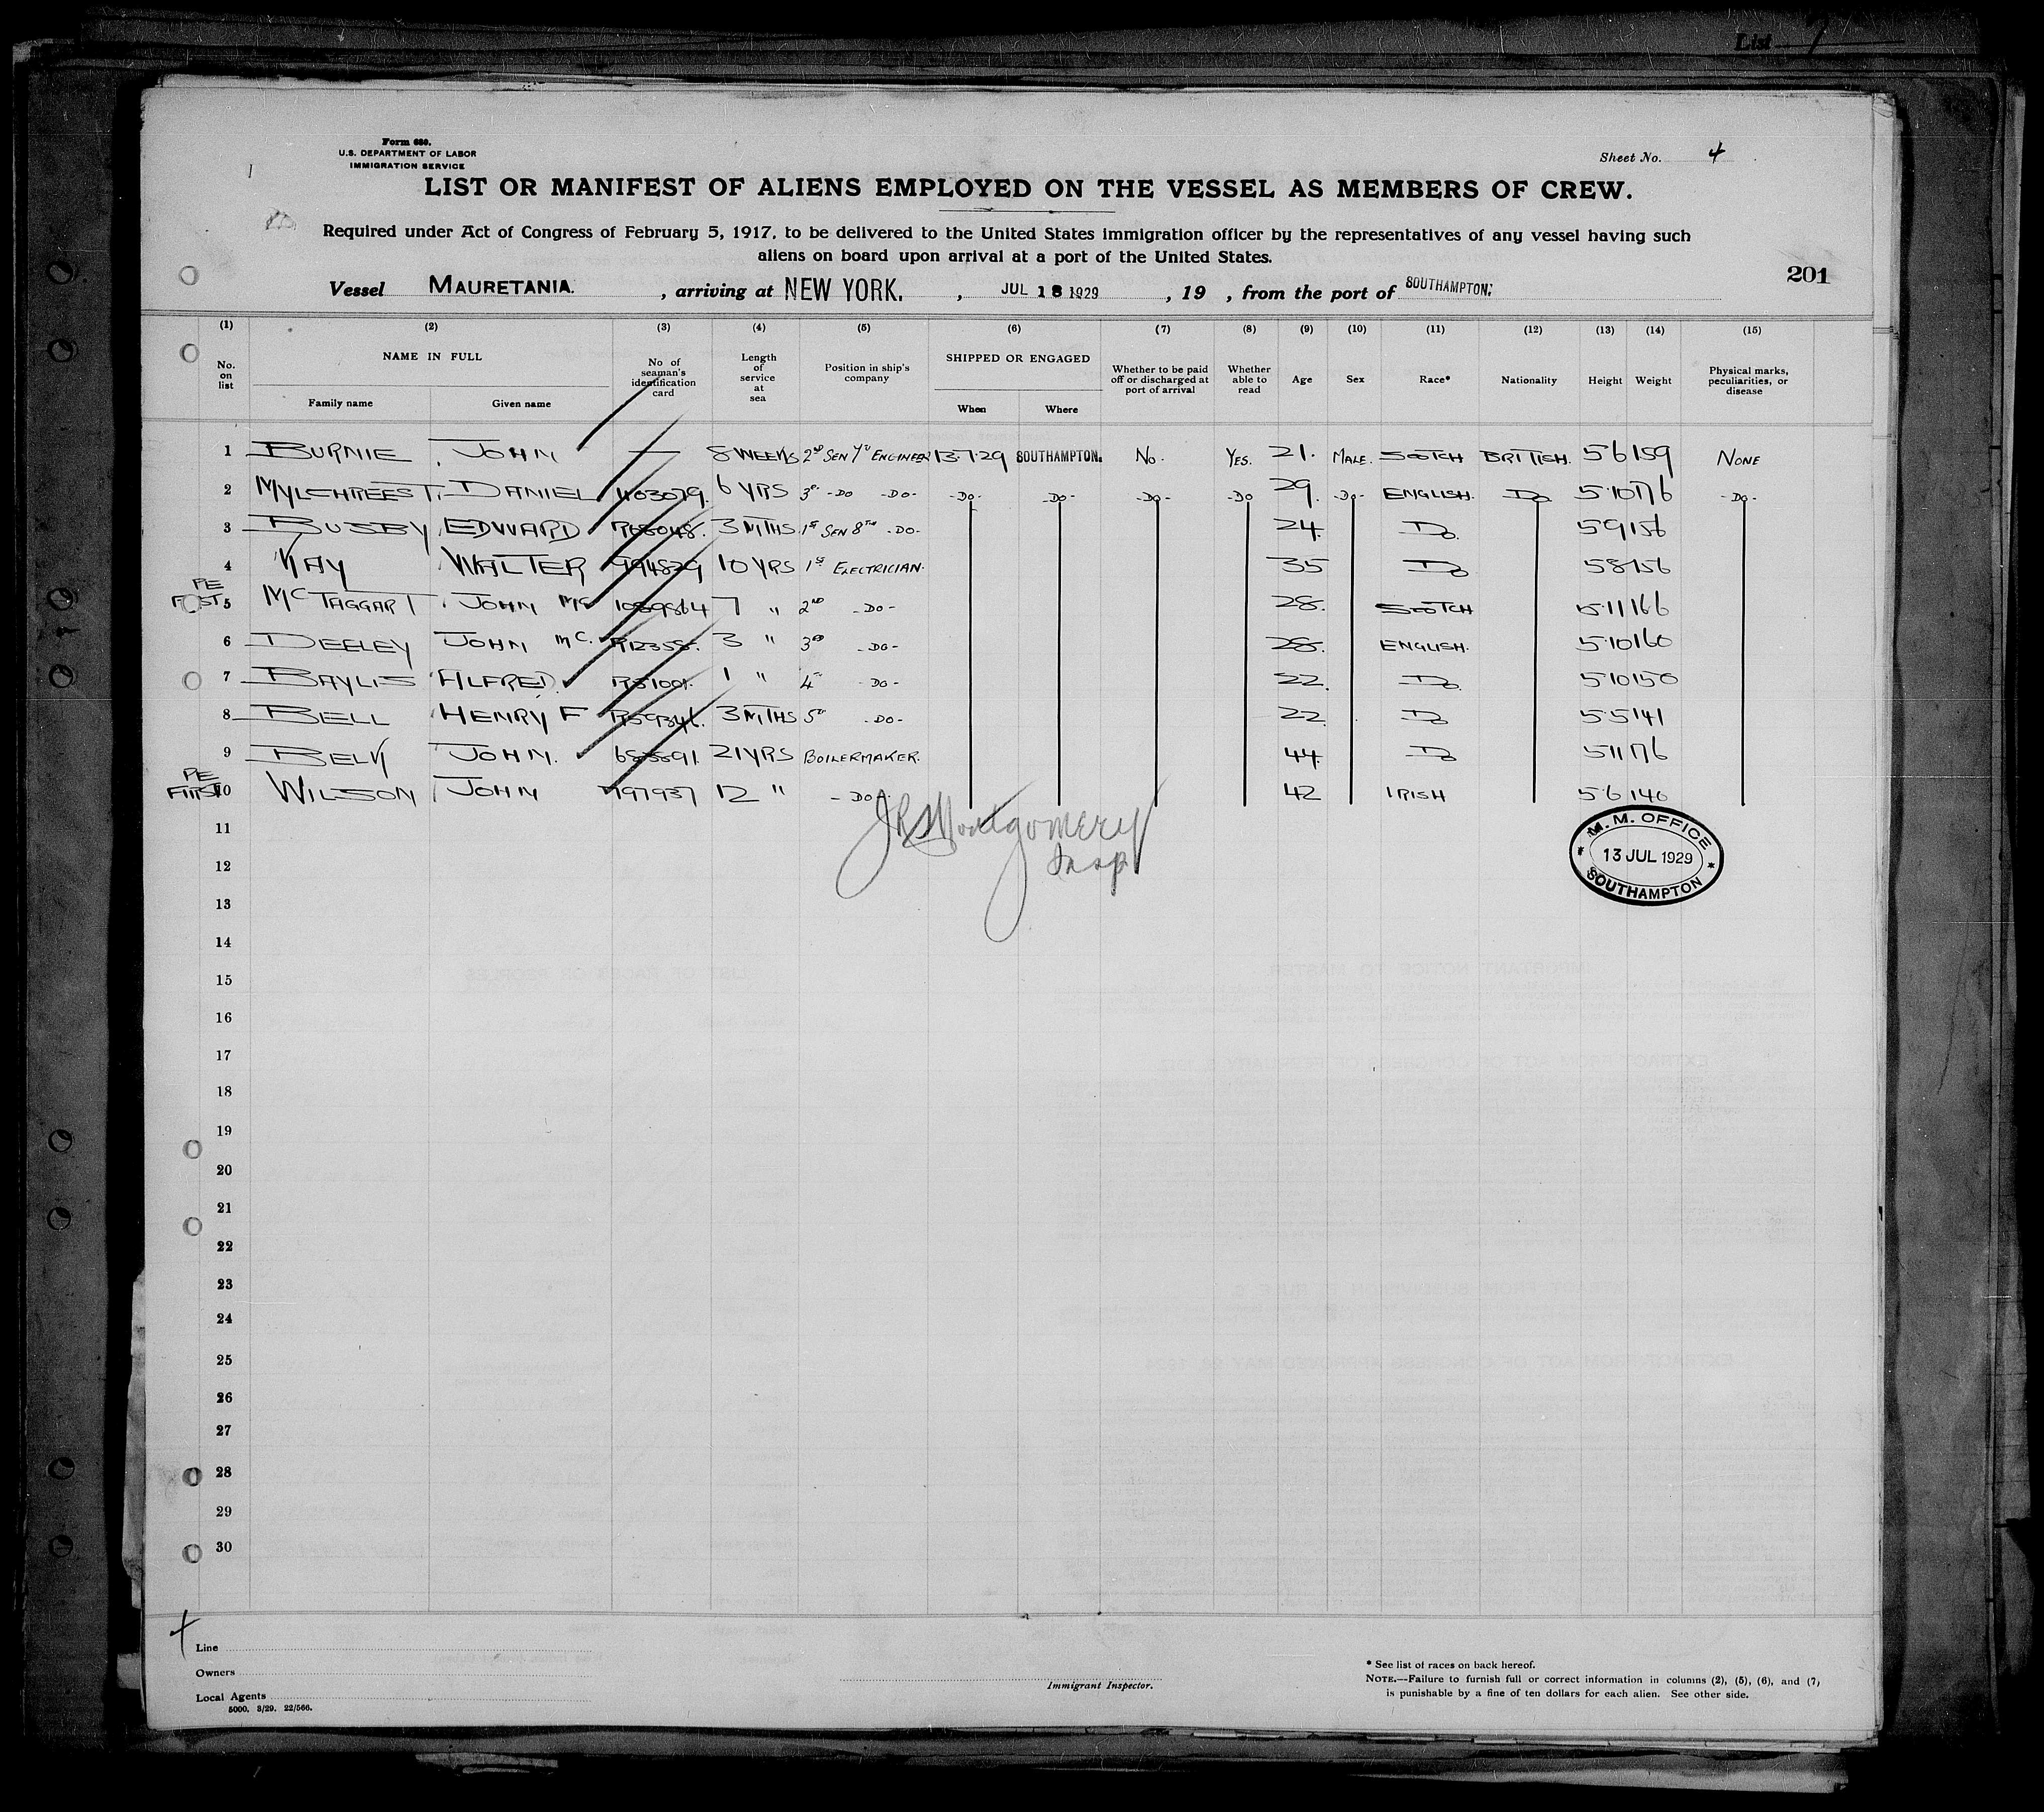 List 1
Form 680.
U.S. DEPARTMENT OF LABOR
IMMIGRATION SERVICE
Sheet No. 4
LIST OR MANIFEST OF ALIENS EMPLOYED ON THE VESSEL AS MEMBERS OF CREW.
Required under Act of Congress of February 5, 1917, to be delivered to the United States immigration officer by the representatives of any vessel having such
aliens on board upon arrival at a port of the United States.
201
Vessel MAURETANIA. , arriving at NEW YORK. , JUL 18 1929 , 19 , from the port of SOUTHAMPTON.
(1) (2) (3) (4) (5) (6) (7) (8) (9) (10) (11) (12) (13) (14) (15)
No. on list NAME IN FULL Family name Given name No of seaman's identification card Length of service at sea Position in ship's company SHIPPED OR ENGAGED When Where Whether to be paid off or discharged at port of arrival Whether able to read Age Sex Race* Nationality Height Weight Physical marks, peculiarities, or disease
1 BURNIE, JOHN — 8 WEEKS 2ND SEN 7TH ENGINEER 13.7.29 SOUTHAMPTON. No. YES. 21. MALE. SCOTCH BRITISH. 5 6 159 NONE
2 MYLCHREEST, DANIEL 1103079. 6 YRS 3RD -DO -DO- -DO- -DO- -DO- -DO 29. -DO- ENGLISH. DO 5.10 176 -DO-
3 BUSBY, EDWARD R68048. 3 MTHS. 1ST SEN 8TH -DO- 24. DO. 5 9 156
4 KAY WALTER 994829 10 YRS 1ST ELECTRICIAN. 35 DO 5 8 156
PE FIRST 5 MCTAGGART, JOHN MC 1089864 7 " 2ND -DO- 28. SCOTCH 5.11 166
6 DEELEY JOHN MC. R12358. 3 " 3RD -DO- 28. ENGLISH. 5.10 160
7 BAYLIS ALFRED. R51001. 1 " 4TH -DO- 22. DO. 5 10 150
8 BELL HENRY F R59346. 3 MTHS 5TH -DO- 22. DO 5.5 141
9 BELK JOHN. 685891. 21 YRS BOILERMAKER. 44. DO 5 11 176
PE FIRST 10 WILSON, JOHN 797937 12 " -DO- 42 IRISH 5.6 146
JR Montgomery
Insp
M.M. OFFICE
13 JUL 1929
SOUTHAMPTON
11
12
13
14
15
16
17
18
19
20
21
22
23
24
25
26
27
28
29
30
Line
Owners
Local Agents
5000. 3/29. 22/566.
Immigrant Inspector.
* See list of races on back hereof.
NOTE.—Failure to furnish full or correct information in columns (2), (5), (6), and (7)
is punishable by a fine of ten dollars for each alien. See other side.